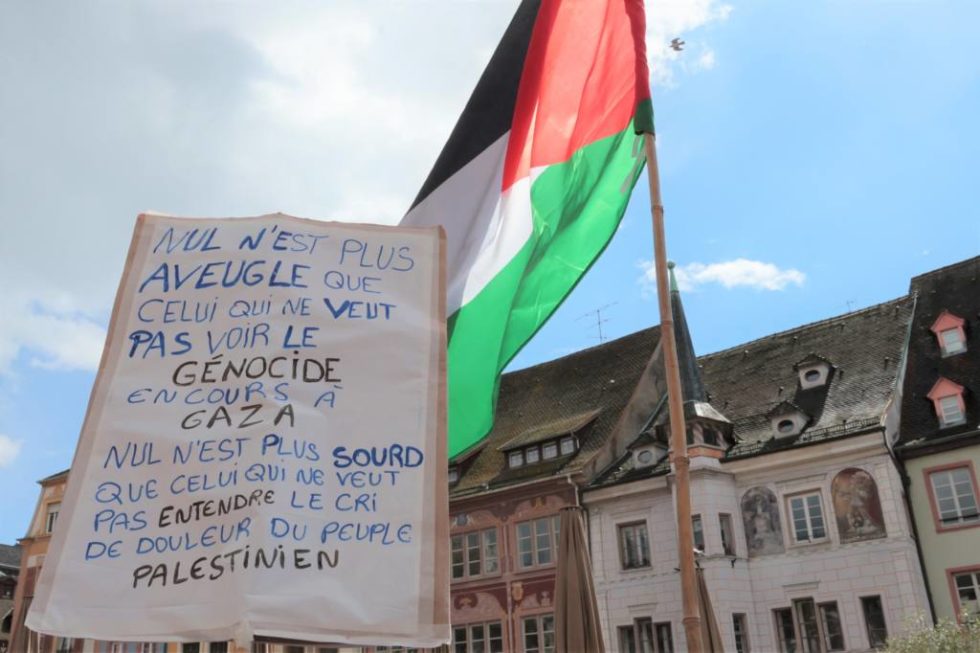 NUL N'EST PLUS
AVEUGLE QUE
CELUI QUI NE VEUT
PAS VOIR LE
GÉNOCIDE
EN COURS À
GAZA
NUL N'EST PLUS SOURD
QUE CELUI QUI NE VEUT
PAS ENTENDRE LE CRI
DE DOULEUR DU PEUPLE
PALESTINIEN